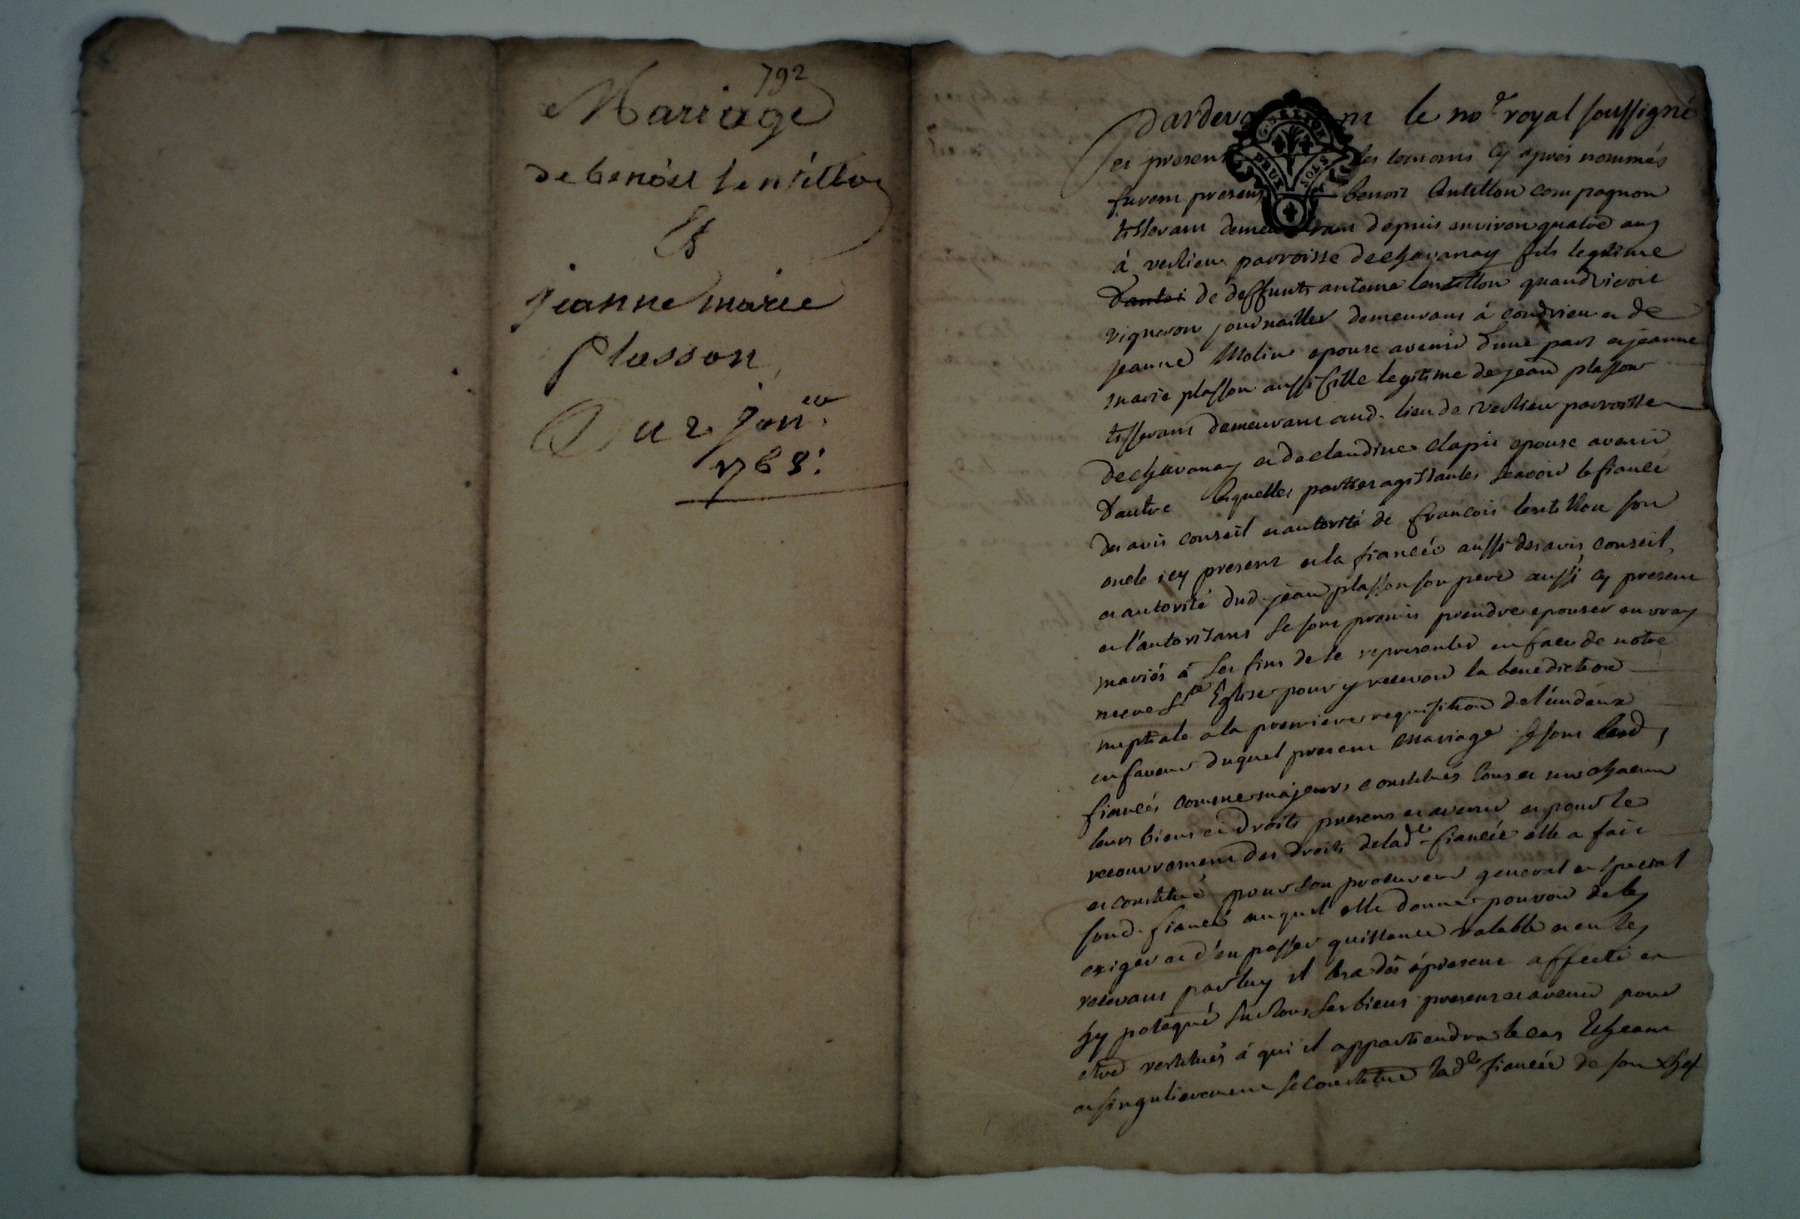 792
Mariage
de benoit lentillon
Et
jeanne marie
plasson
Du 2 janer
1768.
Pardevant le no.e royal soussigné
et presents les temoins cy aprés nommés
furent presents benoit lentillon compagnon
tisserant demeurant depuis environ quatre ans
à verlieu parroisse de chavanay fils legitime
d'antoi de deffunts antoine lentillon quand vivoit
vigneron journaillier demeurant á condrieu et de
jeanne Molin epoux avenir d'une part et jeanne
marie plasson aussi fille legitime de jean plasson
tisserant demeurant aud. lieu de verlieu parroisse
de chavanay et de claudine clapié epouse avenir
d'autre lesquelles parties agissantes scavoir le fiancé
des avis conseil et autorité de francois lentillon son
oncle icy present et la fiancée aussi des avis conseil
et autorité dud. jean plasson son pere aussi cy present
et l'autorisant se sont promis prendre epouser en vray
mariés á ces fins de se representer en face de notre
mere Ste Eglise pour y recevoir la benediction
nuptiale a la premiere requisition de l'un d'eux
en faveur duquel present mariage se sont lesd.
fiancés comme majeurs constitués tous et un chacun
leurs biens et droits presens et avenir et pour le
recouvrement des droits de lad.e fiancée elle a fait
et constitué pour son procureur general et special
sond. fiancé auquel elle donne pouvoir de les
exiger et d'en passer quittance valable et en les
recevant par luy il les a dés á present affecté et
hypotequé sur tous ses biens presens et avenir pour
etre restitués á qui il appartiendra le cas Echeant
et singulierement se constitue lad.e fiancée de son chef
GENERALITÉ
DEUX SOLS